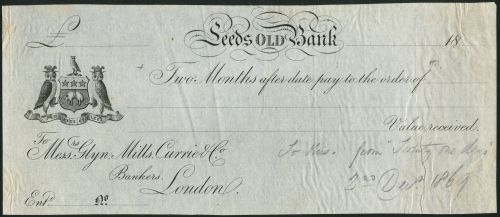 £ Leeds OLD Bank 18
Two Months after date pay to the order of
Value received.
To Messrs. Glyn, Mills, Currie & Co
Bankers,
London.
Entd. No
from
2nd Decr. 1869